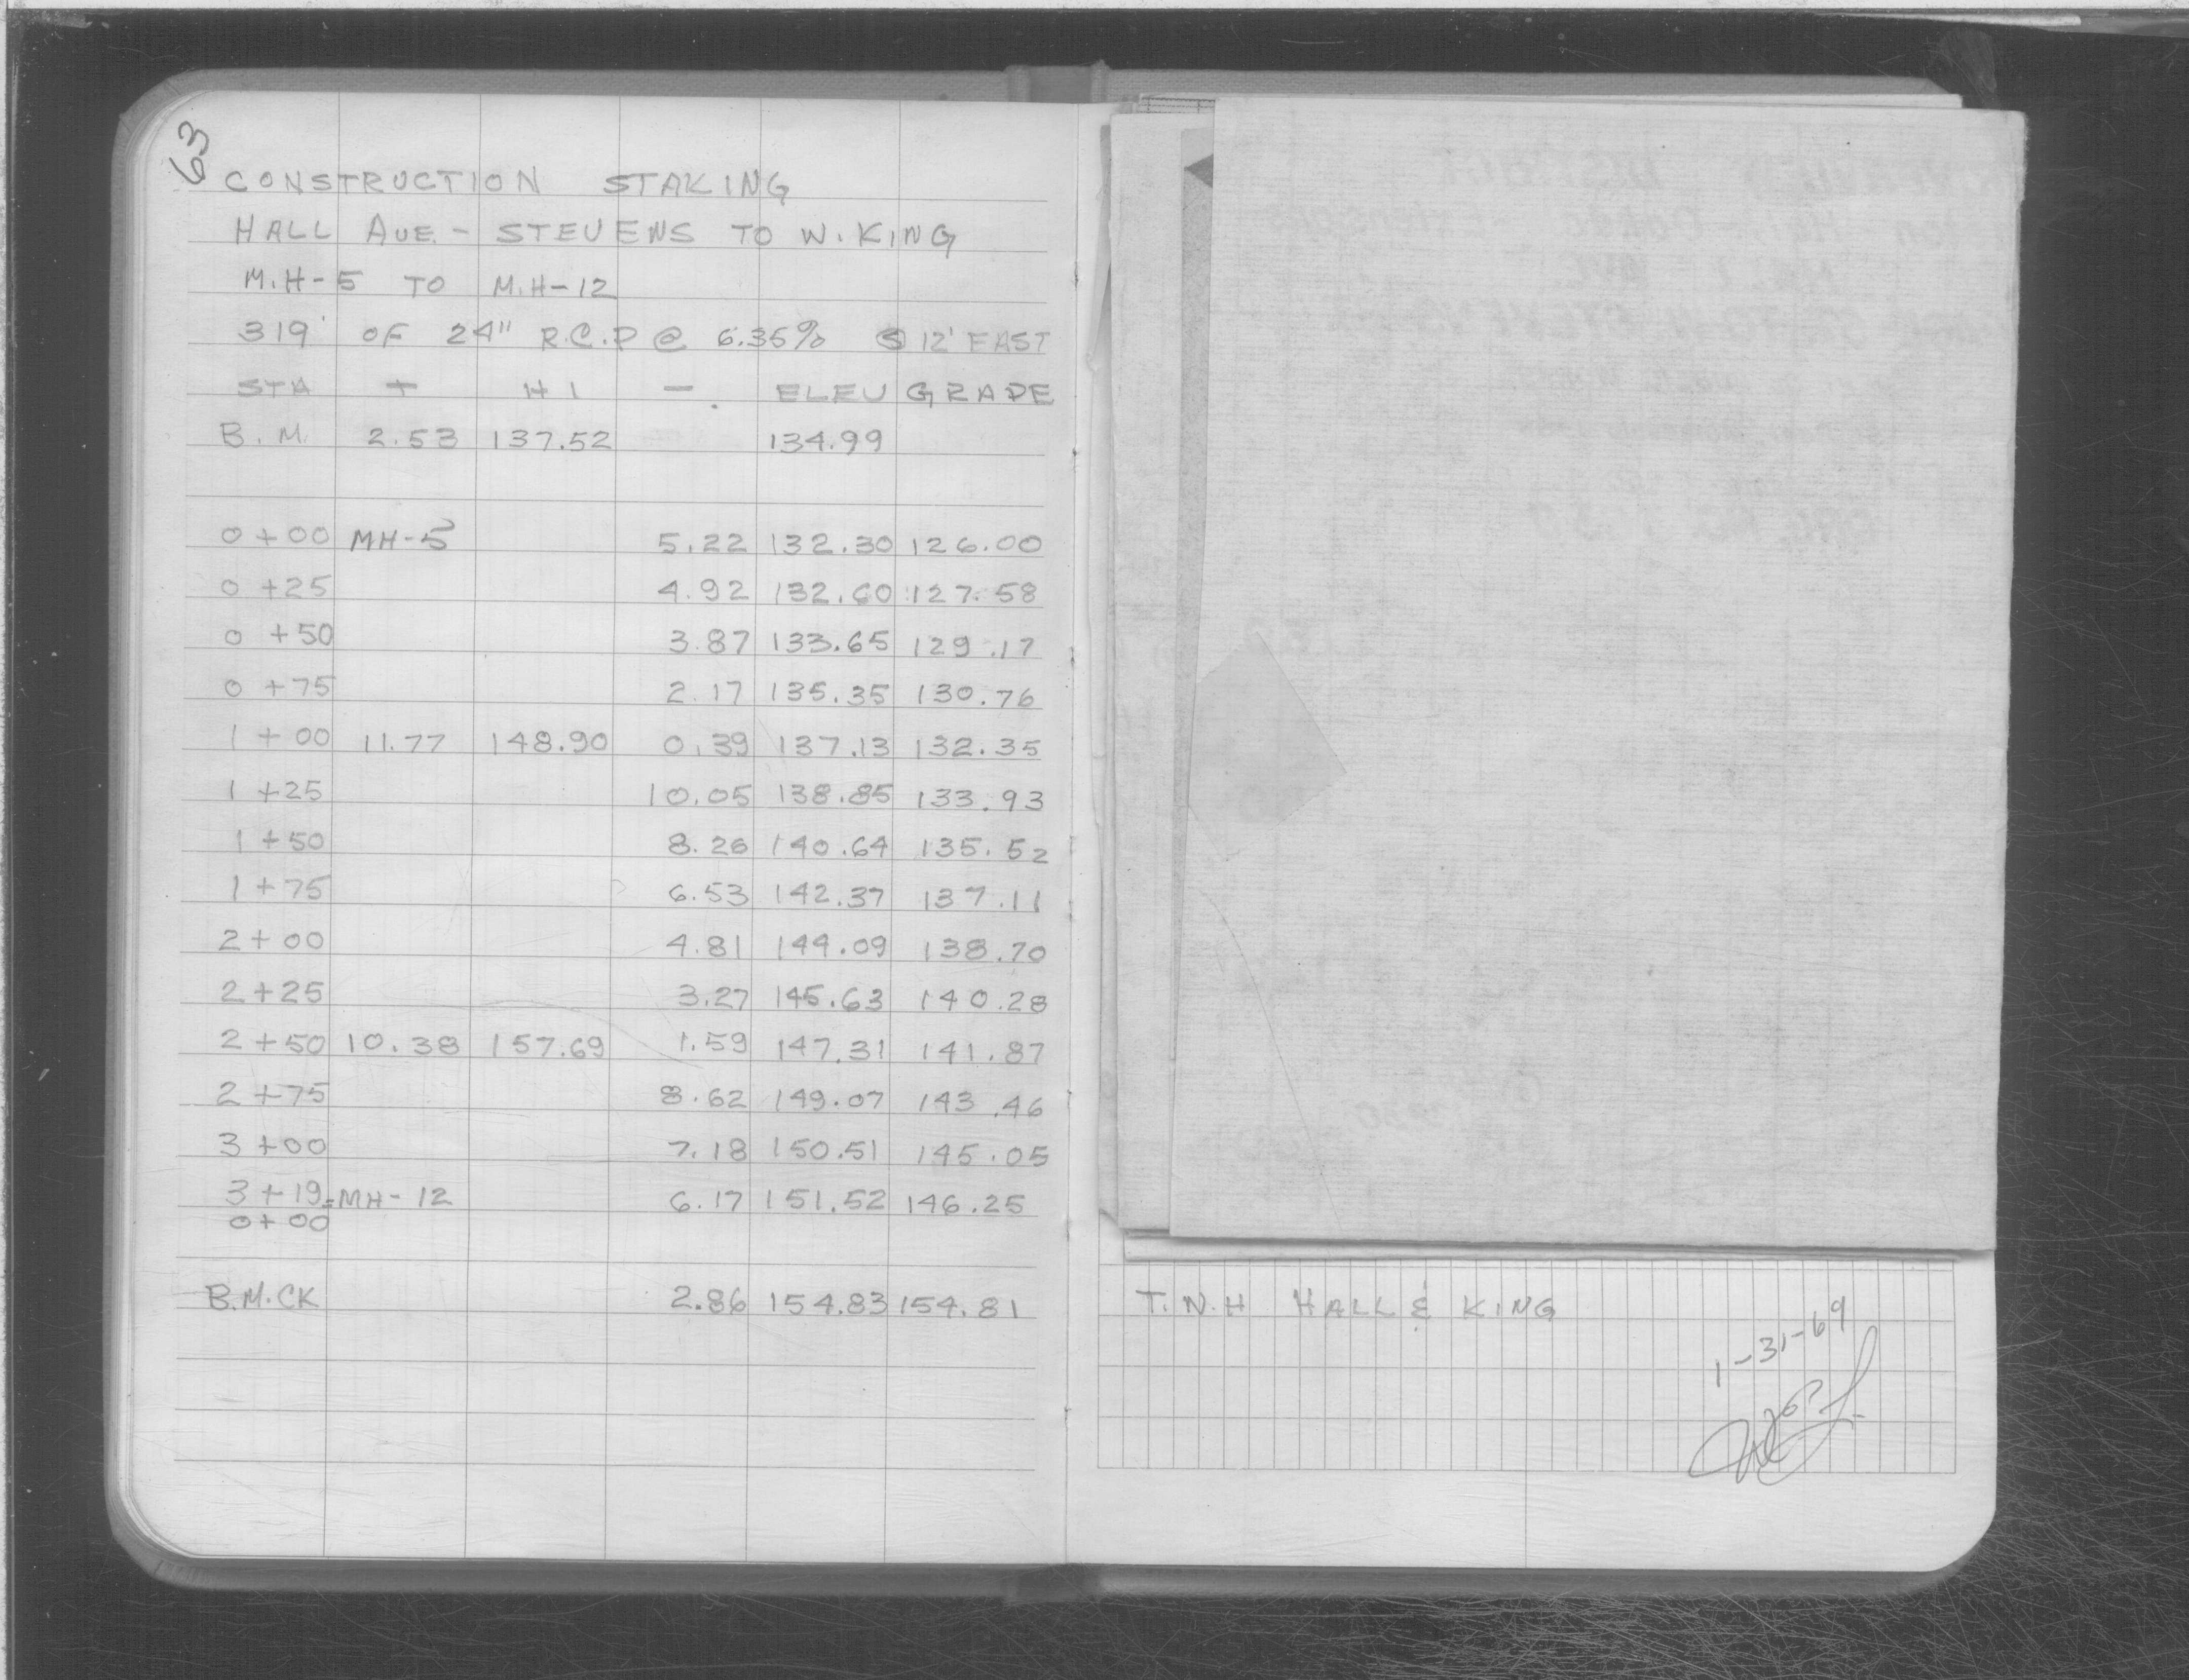 63
CONSTRUCTION STAKING
HALL AVE. - STEVENS TO W. KING
M.H-5 TO M.H-12
319' OF 24" R.C.P @ 6.35% 12' EAST
STA + H I - ELEV GRADE
B.M. 2.53 137.52 134.99
0+00 MH-5 5.22 132.30 126.00
0+25 4.92 132.60 127.58
0+50 3.87 133.65 129.17
0+75 2.17 135.35 130.76
1+00 11.77 148.90 0.39 137.13 132.35
1+25 10.05 138.85 133.93
1+50 8.26 140.64 135.52
1+75 6.53 142.37 137.11
2+00 4.81 144.09 138.70
2+25 3.27 145.63 140.28
2+50 10.38 157.69 1.59 147.31 141.87
2+75 8.62 149.07 143.46
3+00 7.18 150.51 145.05
3+19= MH-12 6.17 151.52 146.25
0+00
B.M.CK 2.86 154.83 154.81
T.N.H HALL & KING
1-31-69